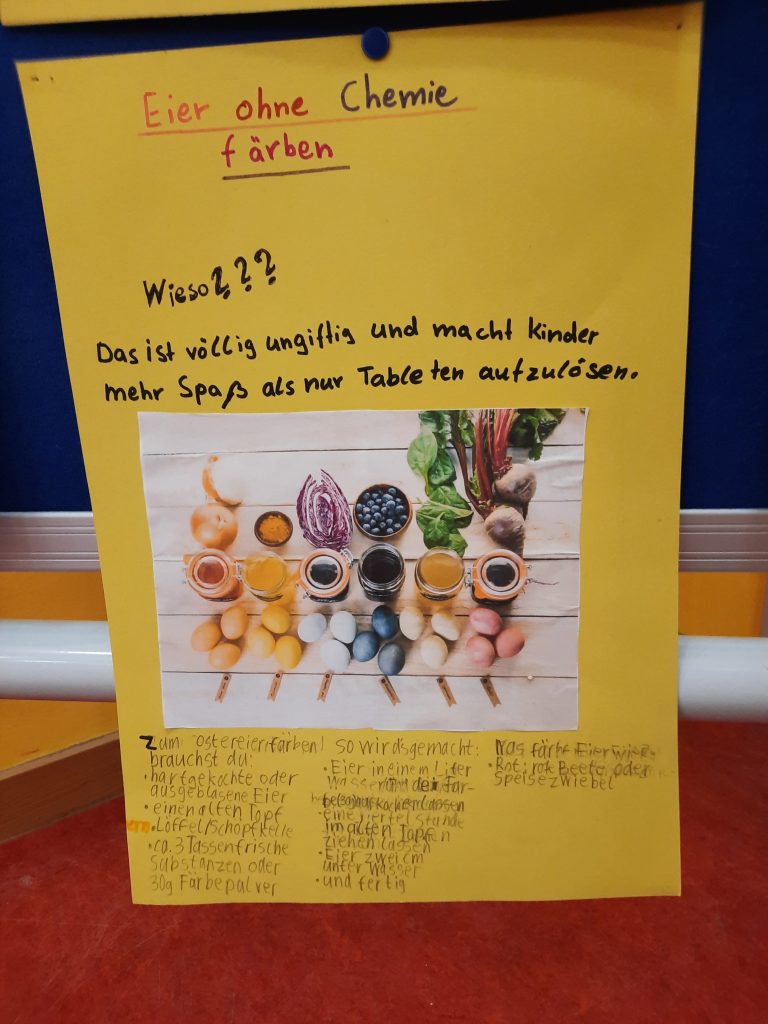 Eier ohne Chemie
färben
Wieso???
Das ist völlig ungiftig und macht Kinder
mehr Spaß als nur Tableten aufzulösen.
Zum Ostereierfärben
brauchst du:
• hartgekochte oder
ausgeblasene Eier
• einen alten Topf
• Löffel/Schöpfkelle
• ca. 3 Tassen frische
Substanzen oder
30g Färbepulver
so wirdsgemacht:
• Eier in einem Liter
Wasser
kochen lassen
• eine viertel stunde
im alten Topf
ziehen lassen
• Eier zwei cm
unter wasser
• und fertig
Was färbt Eier wie?
• Rot: rote Beete oder
Speisezwiebel